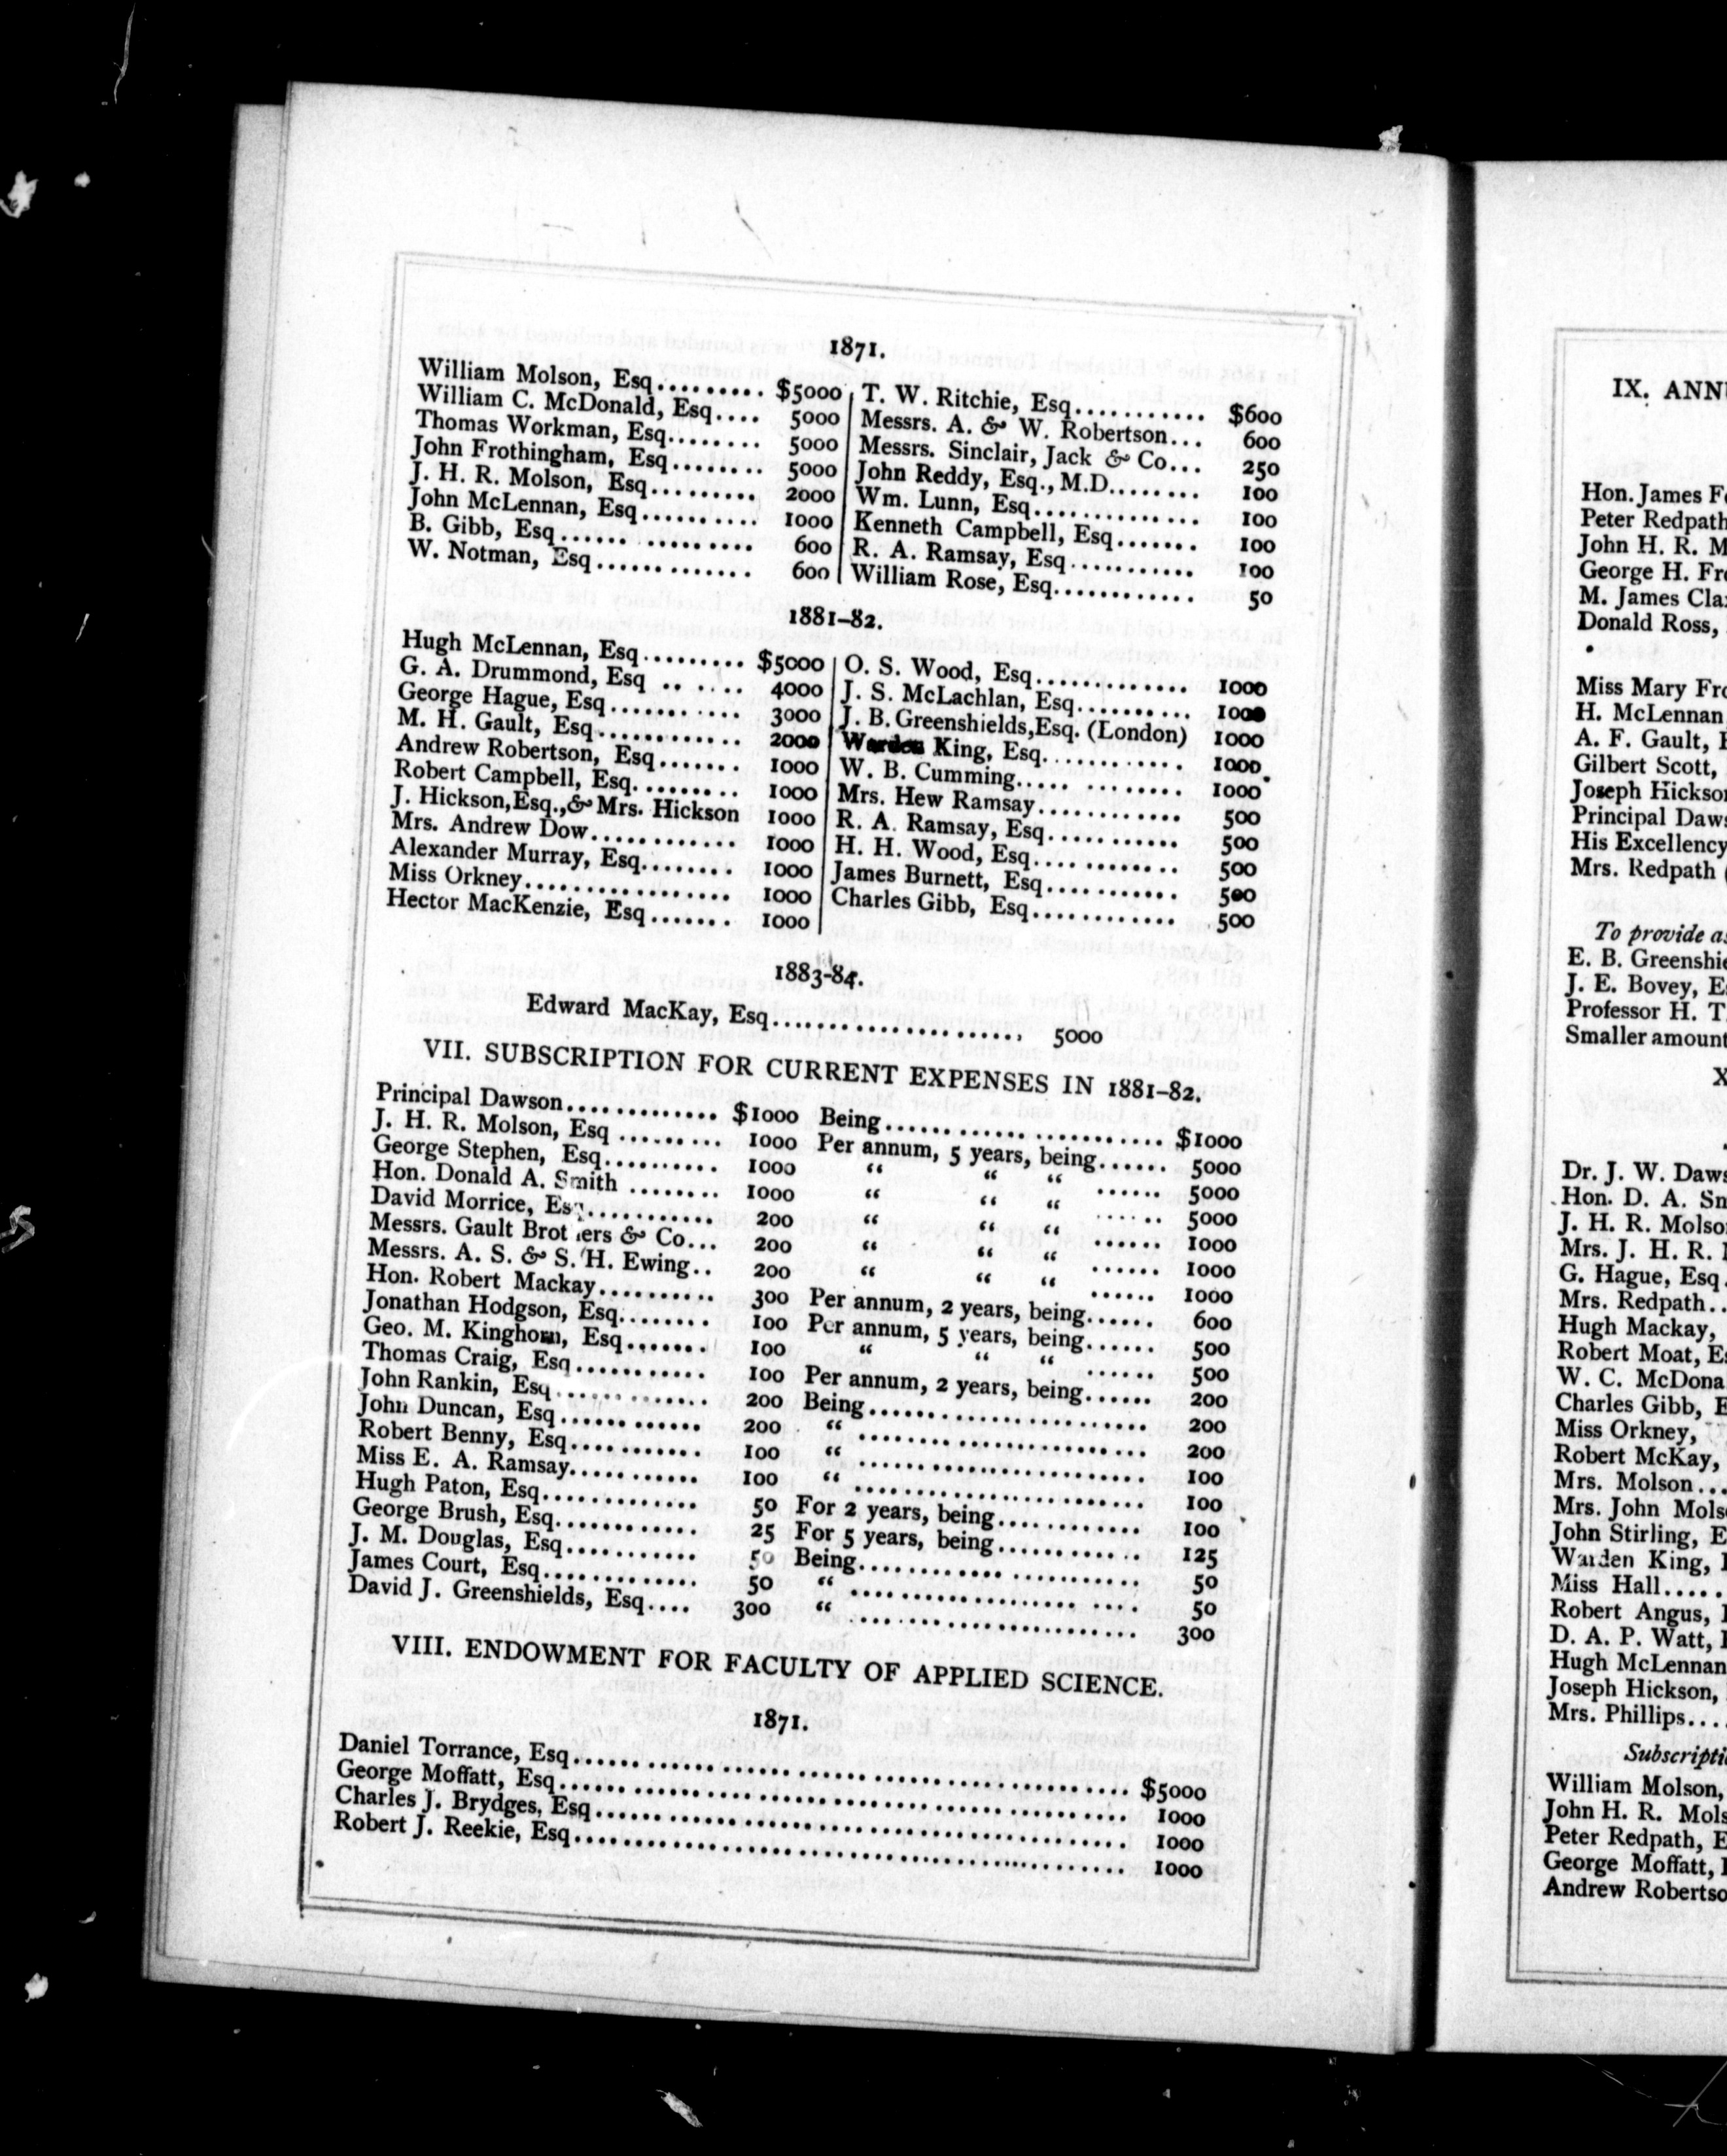 1871.
William Molson, Esq......... $5000
William C. McDonald, Esq.... 5000
Thomas Workman, Esq........ 5000
John Frothingham, Esq........ 5000
J. H. R. Molson, Esq......... 2000
John McLennan, Esq.......... 1000
B. Gibb, Esq...... ......... 600
W. Notman, Esq............. 600
T. W. Ritchie, Esq........... $600
Messrs. A. & W. Robertson... 600
Messrs. Sinclair, Jack & Co... 250
John Reddy, Esq., M.D........ 100
Wm. Lunn, Esq.............. 100
Kenneth Campbell, Esq....... 100
R. A. Ramsay, Esq........... 100
William Rose, Esq............ 50
1881-82.
Hugh McLennan, Esq......... $5000
G. A. Drummond, Esq .. .... 4000
George Hague, Esq........... 3000
M. H. Gault, Esq............ 2000
Andrew Robertson, Esq....... 1000
Robert Campbell, Esq......... 1000
J. Hickson, Esq., & Mrs. Hickson 1000
Mrs. Andrew Dow............ 1000
Alexander Murray, Esq........ 1000
Miss Orkney................. 1000
Hector MacKenzie, Esq....... 1000
O. S. Wood, Esq............. 1000
J. S. McLachlan, Esq.......... 1000
J. B. Greenshields, Esq. (London) 1000
Warden King, Esq............ 1000
W. B. Cumming..... ........ 1000
Mrs. Hew Ramsay............ 500
R. A. Ramsay, Esq........... 500
H. H. Wood, Esq............ 500
James Burnett, Esq........... 500
Charles Gibb, Esq............ 500
1883-84.
Edward MacKay, Esq...................... 5000
VII. SUBSCRIPTION FOR CURRENT EXPENSES IN 1881-82.
Principal Dawson............. $1000 Being...... ...... ........... $1000
J. H. R. Molson, Esq ......... 1000 Per annum, 5 years, being...... 5000
George Stephen, Esq.......... 1000 “ “ “ ...... 5000
Hon. Donald A. Smith ........ 1000 “ “ “ ...... 5000
David Morrice, Esq........... 200 “ “ “ ...... 1000
Messrs. Gault Brothers & Co... 200 “ “ “ ...... 1000
Messrs. A. S. & S. H. Ewing.. 200 “ “ “ ...... 1000
Hon. Robert Mackay.......... 300 Per annum, 2 years, being...... 600
Jonathan Hodgson, Esq........ 100 Per annum, 5 years, being...... 500
Geo. M. Kinghorn, Esq....... 100 “ “ “ ...... 500
Thomas Craig, Esq........... 100 Per annum, 2 years, being...... 200
John Rankin, Esq............ 200 Being......................... 200
John Duncan, Esq............ 200 “ ......................... 200
Robert Benny, Esq........... 100 “ ......................... 100
Miss E. A. Ramsay........... 100 “ ......................... 100
Hugh Paton, Esq............. 50 For 2 years, being............ 100
George Brush, Esq............ 25 For 5 years, being............ 125
J. M. Douglas, Esq........... 50 Being......................... 50
James Court, Esq............. 50 “ ......................... 50
David J. Greenshields, Esq.... 300 “ ......................... 300
VIII. ENDOWMENT FOR FACULTY OF APPLIED SCIENCE.
1871.
Daniel Torrance, Esq................................................ $5000
George Moffatt, Esq................................................. 1000
Charles J. Brydges, Esq............................................. 1000
Robert J. Reekie, Esq............................................... 1000
IX.
Hon. James
Peter Redpath
John H. R.
George H.
M. James
Donald Ross,
Miss Mary
H. McLennan
A. F. Gault,
Gilbert Scott,
Joseph
Principal
His Excellency
Mrs. Redpath
To provide
E. B.
J. E. Bovey,
Professor H. T.
Smaller amount
X
Dr. J. W.
Hon. D. A.
J. H. R.
Mrs. J. H. R.
G. Hague, Esq.
Mrs. Redpath..
Hugh Mackay,
Robert Moat,
W. C.
Charles Gibb,
Miss Orkney,
Robert McKay,
Mrs. Molson...
Mrs. John
John Stirling,
Warden King,
Miss Hall.....
Robert Angus,
D. A. P. Watt,
Hugh McLennan
Joseph Hickson,
Mrs. Phillips....
William Molson,
John H. R.
Peter Redpath,
George Moffatt,
Andrew